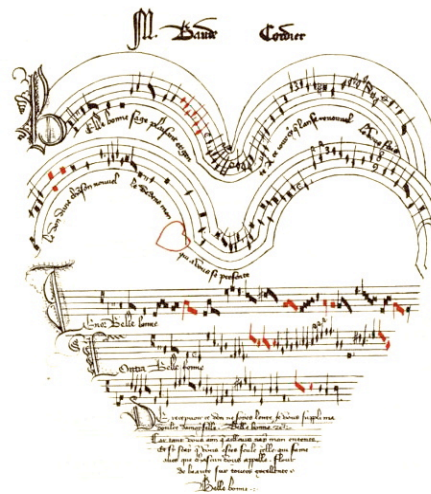 M. Baude Cordier
Belle bonne sage plaisant et gen
te A ce jour cy que lan se renouvel
le Vous fais
le don dune chanson nouvel
le Dedens mon
qui a vous se presente
Tenor Belle bonne
Contra Belle bonne
De recepvoir ce don ne soyes lente Je vous suppli ma
doulce damoiselle Belle bonne
Car tant vous aim qailleurs nay mon entente
Et sy scay que vous estes seule celle qui fame
aves que chascun vous appelle Flour
de beaute sur toutes excellente
Belle bonne